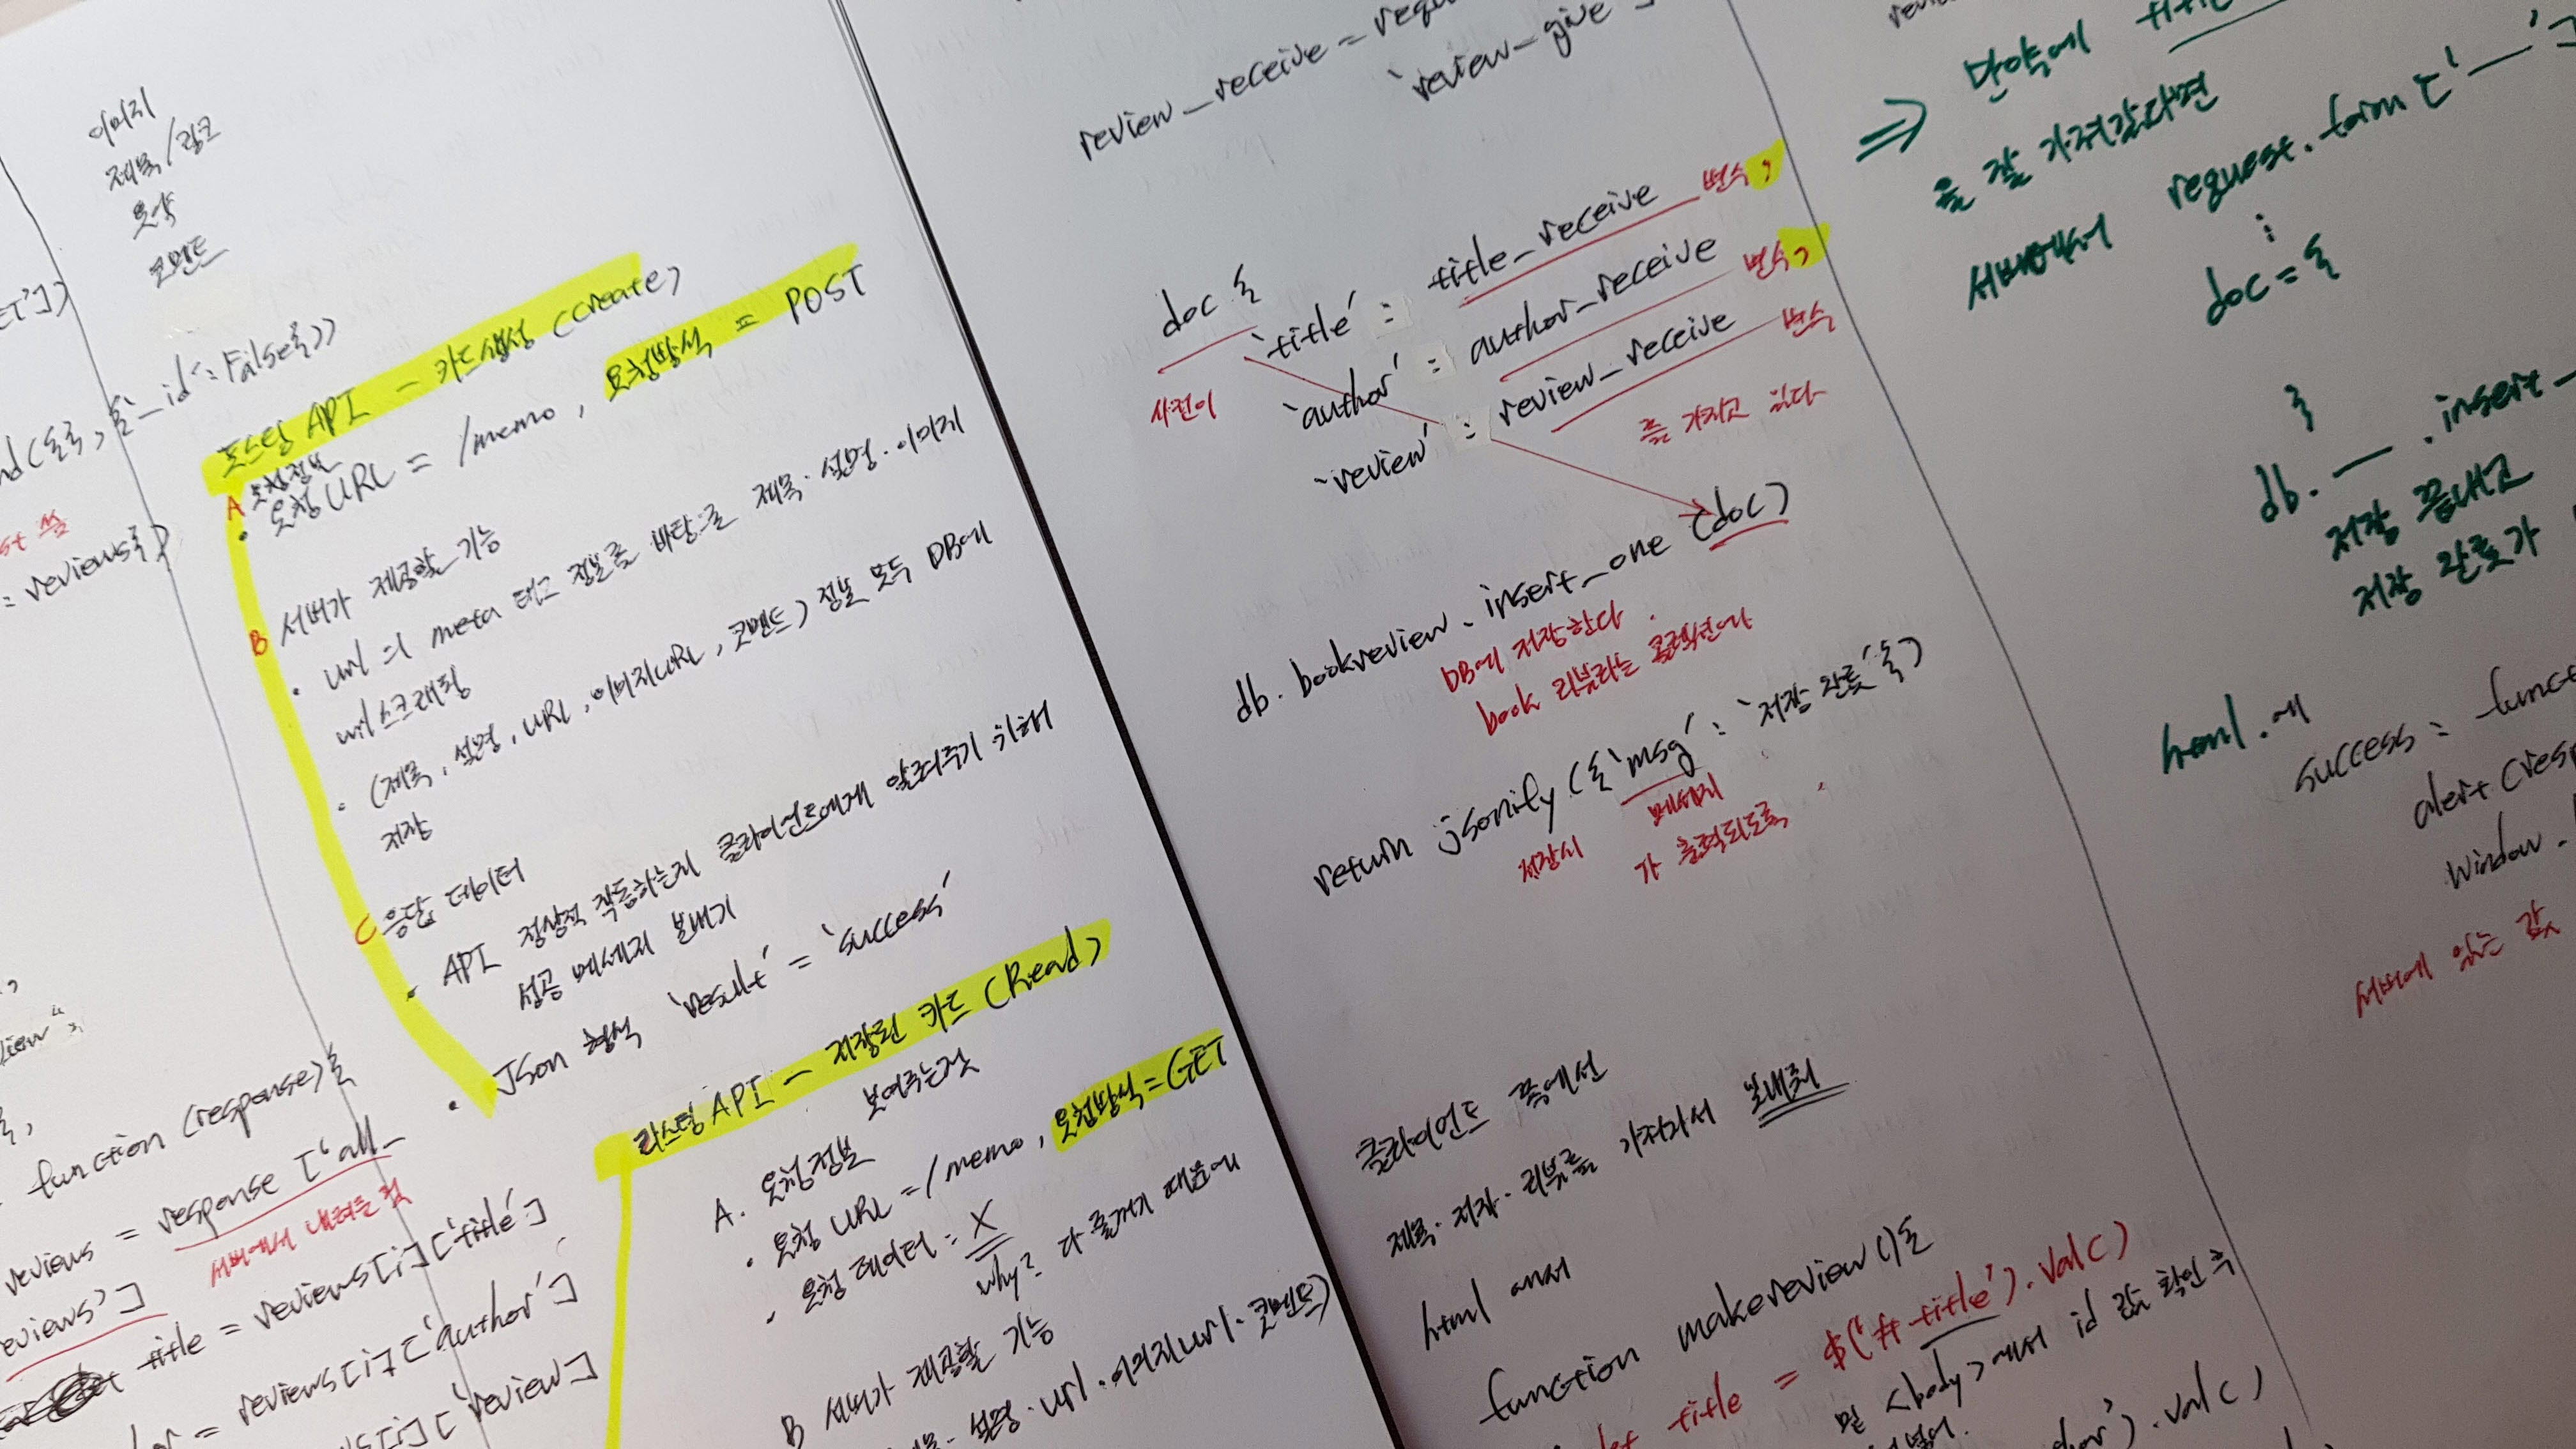 이미지
제목/링크
요약
코멘트
포스팅 API - 카드생성 (Create)
A 요청정보
· 요청 URL = /memo, 요청방식 = POST
B 서버가 제공할 기능
· url의 meta 태그 정보를 바탕으로 제목·설명·이미지
url 스크래핑
· (제목, 설명, URL, 이미지URL, 코멘트) 정보 모두 DB에
저장
C 응답 데이터
· API 정상적 작동하는지 클라이언트에게 알려주기 위해
성공 메세지 보내기
· JSon 형식 'result' = 'success'
리스팅 API - 저장된 카드 (Read)
보여주는것
A. 요청정보
· 요청 URL = /memo, 요청방식 = GET
· 요청 데이터 = X
why? 다 줄꺼기 때문에
B 서버가 제공할 기능
설명·url·이미지url·코멘트)
'_id': False}))
= reviews})
function (response){
reviews = response ['all_
reviews']
서버에서 내려준 것
title = reviews[i]['title']
= reviews[i]['author']
['review]
review_receive =
'review_give
doc {
사전이
'title' : title_receive 변수,
'author' : author_receive 변수,
'review' : review_receive 변수
를 가지고 있다
db.bookreview.insert_one (doc)
DB에 저장한다.
book 리뷰라는 콜렉션에
return jsonify ({'msg' : '저장 완료'})
저장시 메세지
가 출력되도록
클라이언트 쪽에선
제목·저자·리뷰를 가져가서 보내줘
html 에서
function makereview (){
title = $('#title').val()
밑 <body>에서 id 값 확인 후
').val()
⇒ 만약에
을 잘 가져갔다면
서버에서 request.form ['__']
doc = {
}
db.__.insert_
저장 끝내고
저장 완료가
html.에
success = 
alert (resp
window.
서버에 있는 값